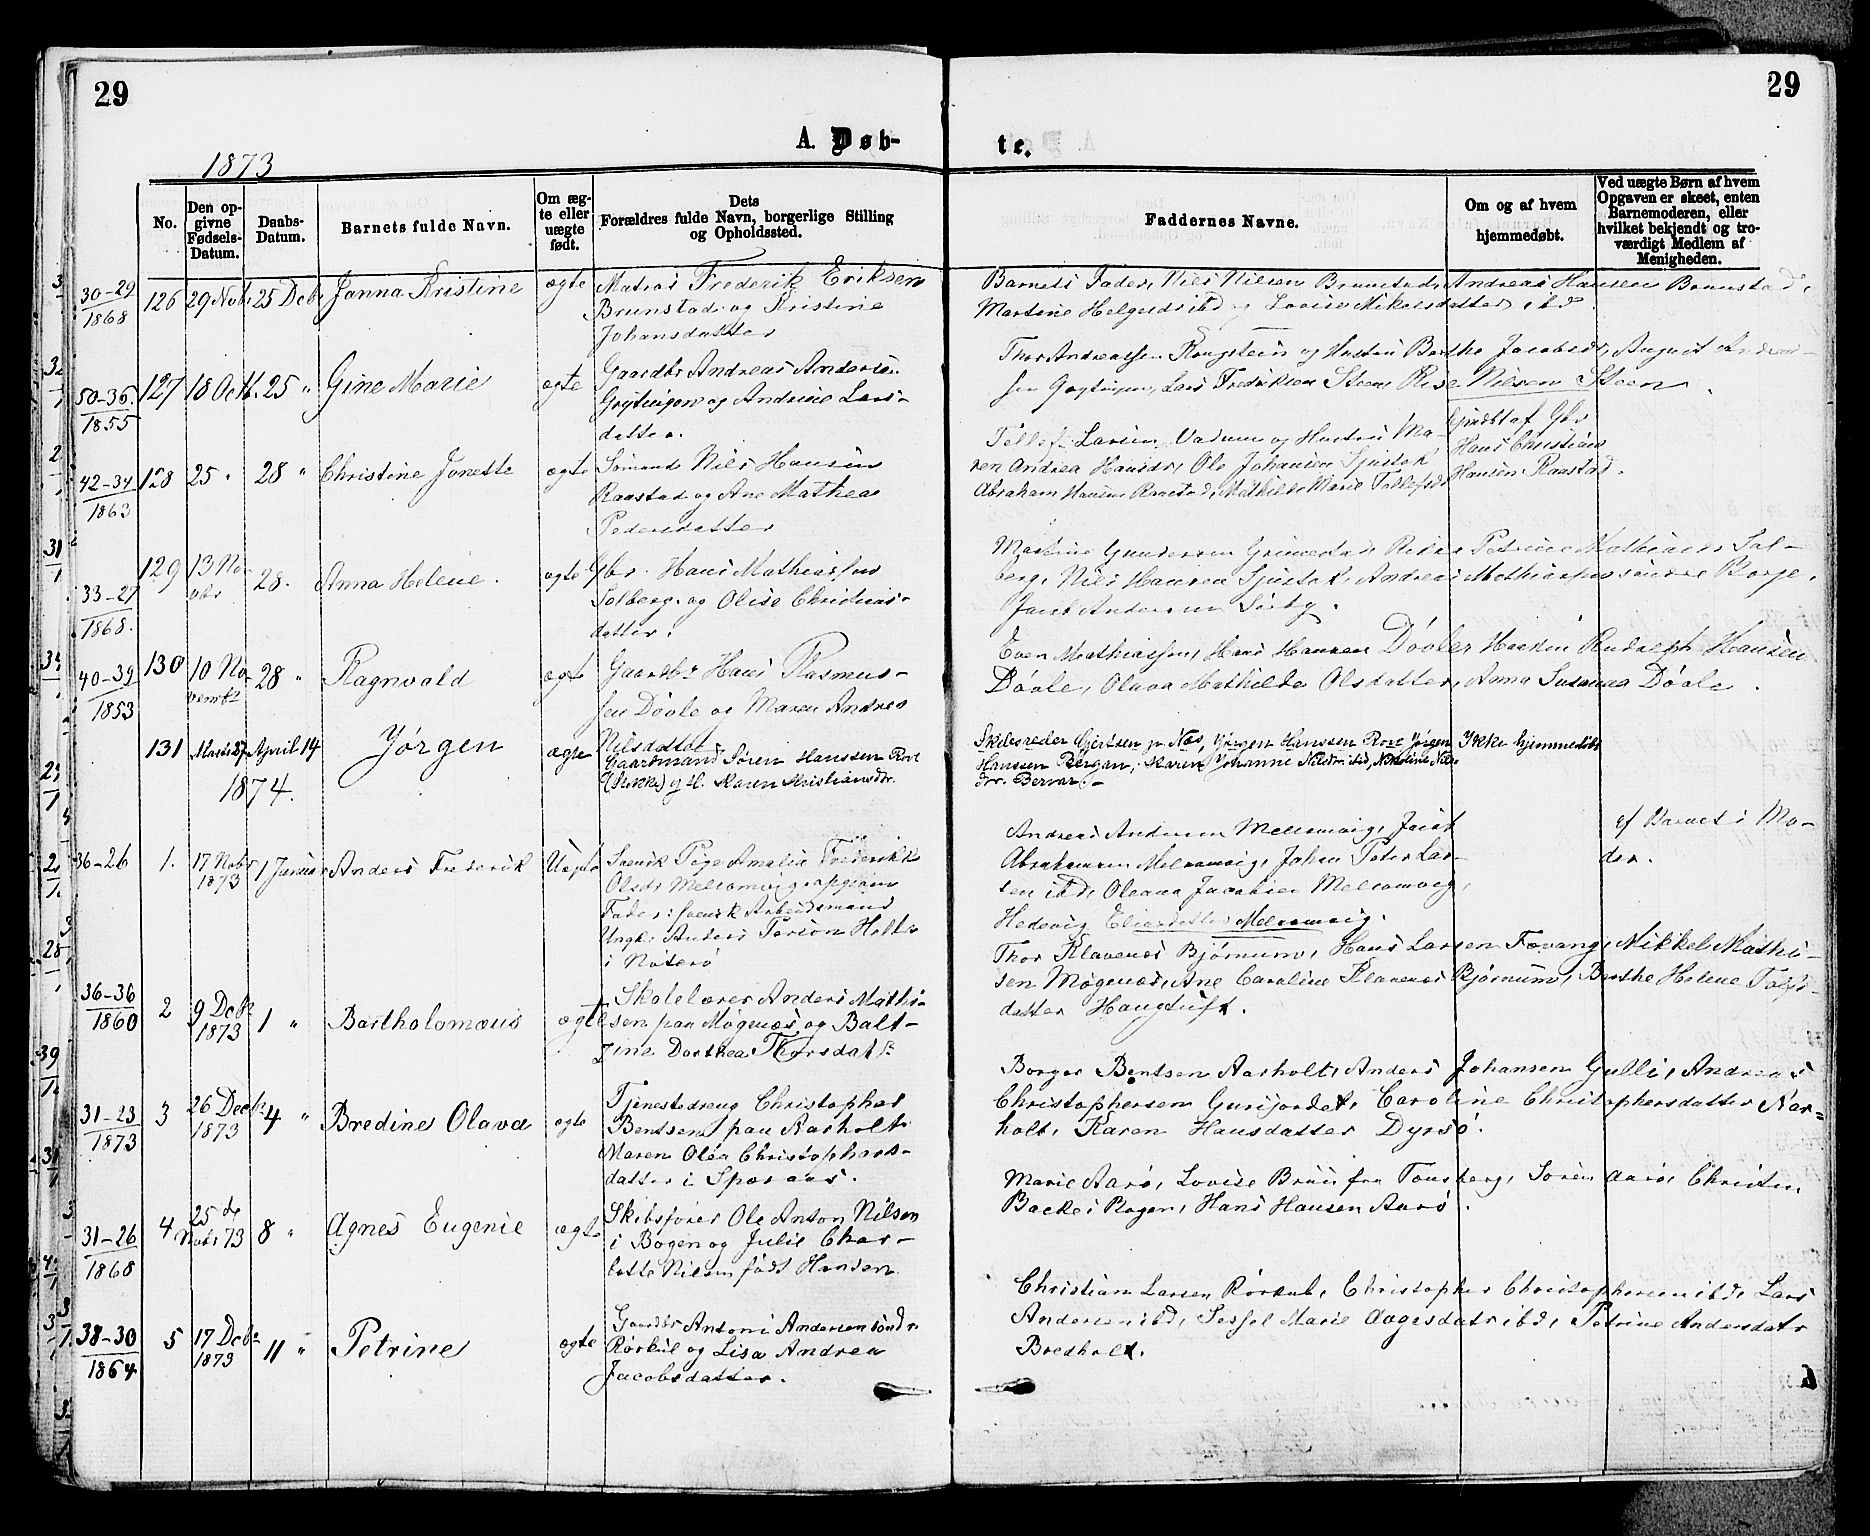 29
29
A. Døb-
te.
1873
No.
Den op-
givne
Fødsels-
Datum.
Daabs-
Datum.
Barnets fulde Navn.
Om æg-
te eller
uægte
født.
Dets
Forældres fulde Navn, borgerlige Stilling
og Opholdssted.
Faddernes Navne.
Om og af hvem
hjemmedøbt.
Ved uægte Børn af hvem
Opgaven er skeet, enten
Barnemoderen, eller
hvilket bekjendt og tro-
værdigt Medlem af
Menigheden.
30-29
1868
126
29 Nob
25 Deb
Janna Kristine
ægte
Matros Frederik Eriksen
Brunstad og Kristine
Johansdatter
Barnets Fader, Nils Nilsen Brunstad, Andreas Hansen Brunstad,
Martine Helgesdr ibd og Lovise Nikolsdatter ibd
50-36
1855
127
18 Octb.
25 "
Gine Marie
ægte
Gaardbr Andreas Anderse
Grytingen og Andrine Lars-
datter.
Thor Andreassen og Hustru Berthe Jacobsdr, August Andrea-
sen Grytingen, Lars Fredriksen Steen, Nilsen Steen
42-34
1863
128
25 "
28 "
Christine Jonette
ægte
Sömand Nils Hansen
Raastad og Ane Mathea
Pedersdatter
Tellef Larsen Vadum og Hustru Ma-
ren Andrea Hansdr, Ole Johansen Sjustok
Abraham Hansen Raastad, Mathilde Marie Tellefsdr
Hans Christian
Hansen Raastad.
33-27
1868.
129
13 No-
vbr
28.
Anna Helene.
ægte
Gbr. Hans Mathiassen
Solberg og Olise Christens-
datter.
Martine Gundersen Grimestad, Petrine Mathiasdr Sol-
berg, Nils Hansen Sjustok, Andreas Mathiassen söndre Borge,
Jacob Andersen Sörby.
40-39
1853
130
10 No-
vembr
28 "
Ragnvald
ægte
Gaardbr Hans Rasmus-
sen Döole og Maren Andrea
Nilsdatter
Even Mathiassen, Hans Hansen Döole, Rudolph Hansen
Döole, Olava Mathilde Olsdatter, Anna Susanna Döole.
131
Marts 27
April 14
Jørgen
ægte
Gaardmand Søren Hanssen Rore
og H. Karen Kristiansdr.
Skibsreder Gjertsen p. Næs, Jørgen Hanssen Rore, Jørgen
Hanssen Bergan, Karen Johanne Nilsdr ibid, Nikoline Nils
dr. Bervar.-
Ikke hjemmedøbt
1874.
36-26
1.
17 Nobr
1873
1 Januar
Anders Frederik
Uægte
Svensk Pige Amalia Frederikke
Olsdr Melsomvig opgiven
Fader: svensk Arbeidsmand
Ungk. Anders Holt
i Nøterö
Andreas Andersen Melsomvig, Jacob
Abrahamsen Melsomvig, Johan Peter Lar-
sen ibd, Oleana Jacobsen Melsomvig,
Hedevig Eliasdatter Melsomvig.
af Barnets Mo-
der.
36-36
1860
2
9 Debr
1873
1 "
Bartholomæus
ægte
Skolelærer Anders Mathi-
sen paa Mögenæs og Balt-
zine Dorthea Thorsdatr
Thor Klavenæs Bjørnum, Hans Larsen Fævang, Nikkel Mathi-
sen Mögenæs, Ane Caroline Klavenæs Bjørnum, Berthe Helene
datter Haugtuft.
31-23
1873
3
26 Decbr
1873
4 "
Bredine Olava
ægte
Tjenestedreng Christopher
Bentsen paa Aarholt
Maren Olea Christophers-
datter i
Borger Bentsen Aarholt, Anders Johansen Gulli, Andreas
Christophersen Gurijordet, Caroline Christophersdatter Aar=
holt, Karen Hansdatter Dyrsö.
31-26
1868
4
25 de
Nobr 73
8 "
Agnes Eugenie
ægte
Skibsfører Ole Anton Nilsen
i Bogen og Julie Char-
lotte Nilsen født Hansen
Marie Aarö, Lovise Bruu fra Tønsberg, Sören Aarö, Christen
Backe i Bogen, Hans Hansen Aarö.
38-30
1864
5
17 Debr
1873
11 "
Petrine
ægte
Gaardbr Antoni Andersen söndr
Rörkul og Lisa Andrea
Jacobsdatter.
Christian Larsen Rörkul, Christopher Christophersen ibd, Lars
Andersen ibd, Sessel Marie Aagesdatr ibd, Petrine Andersdatr
Bredholt.